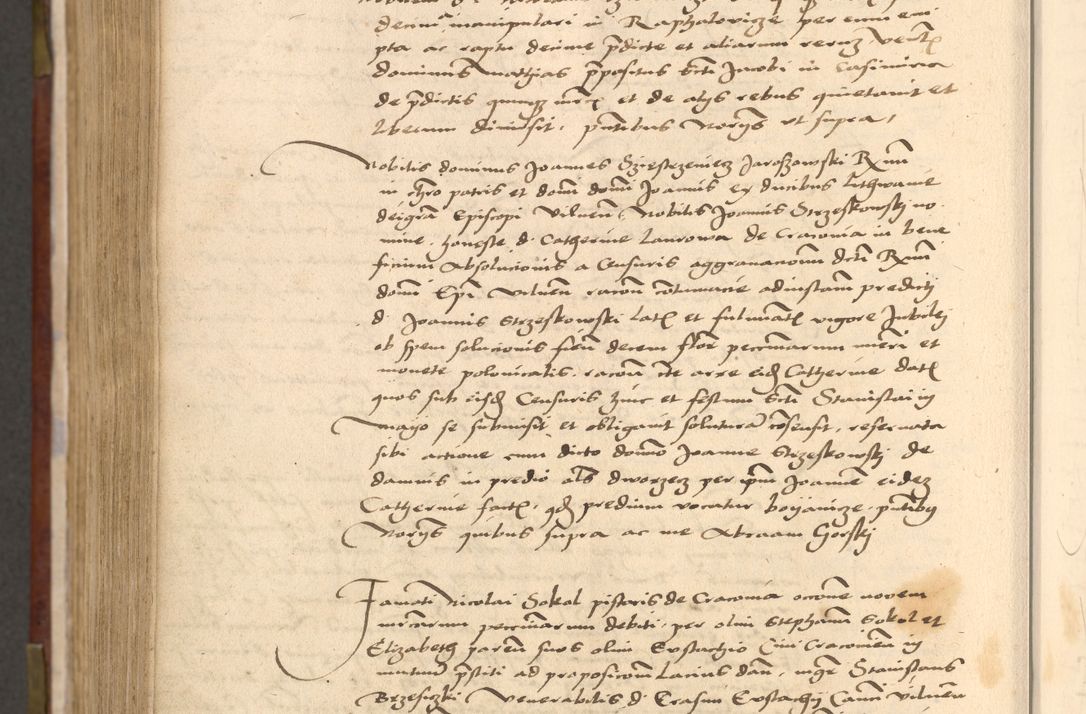 decim manipulari in Raphalovicze per eum eri
pta ac raptu decime pdicte et aliarum rerum vent
dominus Mathias ppositus Scti Jacobi in Casimiria
de pdictis quinqz mrcis et de alys rebus quietavit et
liberum dimisit, pntibus Norys ut supra,
Nobilis dominus Joannes Szrestrzeniecz Jaroszowski Rmi
in chro patris et domi domi Joannis ex ducibus Lithwanie
deigra Episcopi Vilnen, Nobilis Joannis Strzeskowskj no
mine, honeste d Catherine Laurowa de Cracovia in bene
ficium Absolucionis a Censuris aggravacionum dcti Rmi
domi Epi Vilnen racon cotumacie ad instam predicti
d Joannis Strzeskowski lat et fulminat vigore Jubilej
ob spem solucionis fien decem flor pecuniarum nueri et
monete polonicalis, racon cte arre eid Catherine dat
quos sub eisd Censuris hinc et festum Scti Stanislai in
mayo se submisit et obligavit soluturam cosensit, reservata
sibi actione cum dicto domo Joanne Strzeskowskj de
damnis in predio als dworzecz per ipm Joannem eidez
Catherine fact, qd predium vocatur boijanicze, pntibus
Norys quibus supra ac me Abraam Gorskj
Famati Nicolai Sokal pistoris de Cracovia occone novem
mrcarum pecuniarum debiti, per olim Stephanum Sokol et
Elizabeth paren suos olim Eustachio Civi Cracovien in
mutuum pstiti ad proposicom Lanius dam, mgr Stanislaus
Brzesiczki Venerabilis d Erasmi Eustachij Canci Vilnen